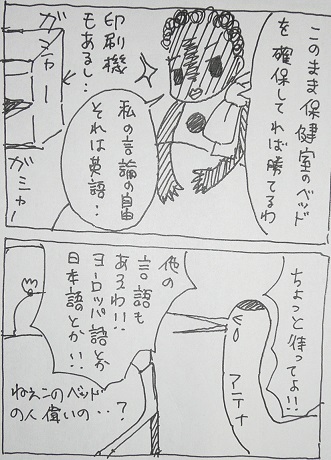 このまま保健室のベッド
を確保してれば勝てるわ
印刷機
もあるし…
ガシャー
ガシャー
私の言論の自由
それは英語…
ちょっと待ってよ!!
アンテナ
他の
言語も
あるわ!!
ヨーロッパ語とか
日本語とか!!
ねえこのベッド
の人偉いの…?